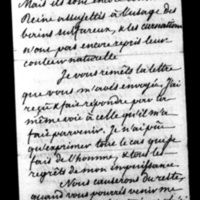 Mais ils sont encore
Reine assujettis à l'usage des
bains sulfureux, & les carnations
n'ont pas encore repris leur
couleur naturelle
Je vous remets la lettre
que vous m'avois envoyé. J'ai
reçu & fait répondre par la
même voie à celle qu'il m'a
fait parvenir. Je n'ai pû
qu'exprimer tout le cas que je
fais de l'homme, & tous les
regrets de mon impuissance.
Nous causerons du reste,
quand vous pourrés venir me